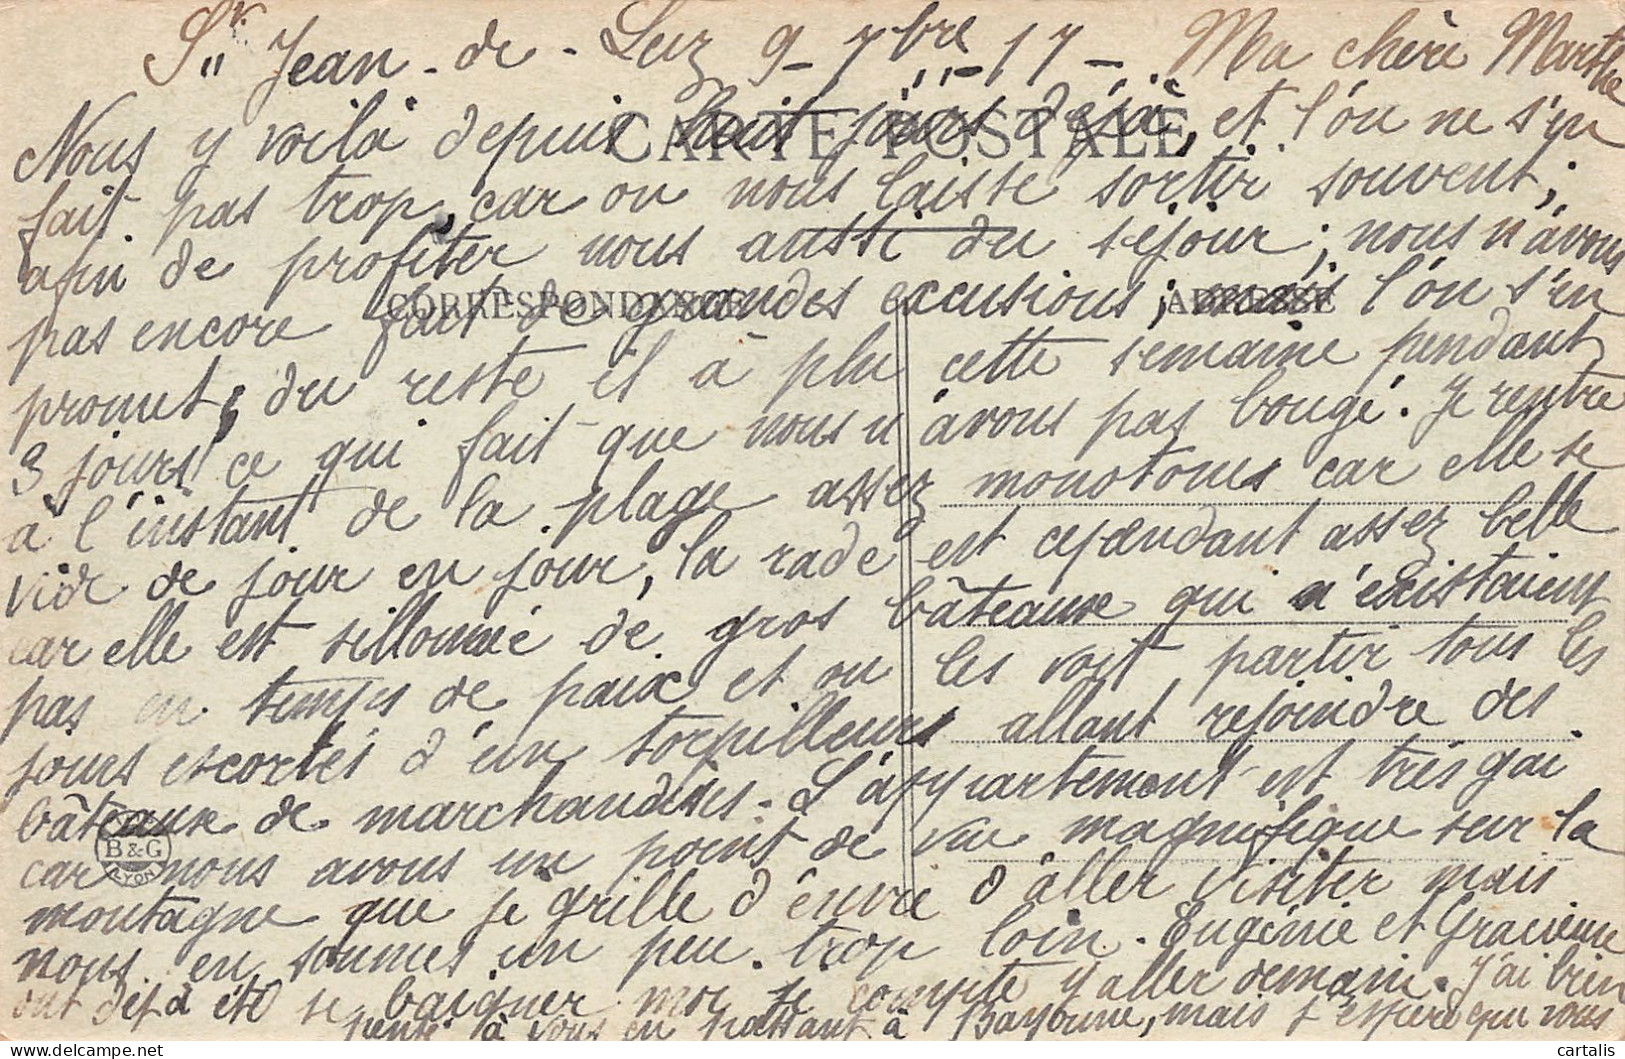 St Jean-de-Luz 9-7bre-17- Ma chère Marthe
CARTE POSTALE
Nous y voilà depuis huit jours déjà, et l'on ne s'en
fait pas trop, car on nous laisse sortir souvent;
afin de profiter nous aussi du séjour; nous n'avons
CORRESPONDANCE ADRESSE
pas encore fait de grandes excusions; mais l'on s'en
promet; du reste il à plu cette semaine pendant
3 jours! ce qui fait que nous n'avons pas bougé. Je rentre
à l'instant de la plage assez monotone car elle se
vide de jour en jour, la rade est cependant assez belle
car elle est sillonnée de gros bâteaux qui n'existaient
pas en temps de paix et on les voit partir tous les
jours escortés d'un torpilleurs allant rejoindre des
bâteaux de marchandises. L'appartement est très gai
B & G
LYON
car nous avons un point de vue magnifique sur la
montagne que je grille d'envie d'aller visiter mais
nous en sommes un peu trop loin. Eugénie et Gracieuse
ont déjà été se baigner moi je compte y aller demain. J'ai bien
pensé à vous en passant à Bayonne, mais j'espère que vous
cartalis